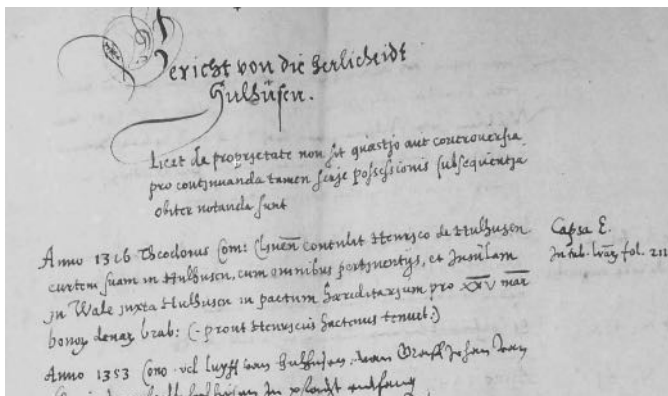 Bericht von die Herlicheidt
Hulhusen.
Licet de proprietate non sit quæstio aut controversia
pro continuanda tamen serie possessionis subsequentia
obiter notanda sunt
Anno 1316 Theodorus Com: Cliven̄ contulit Henrico de Hulhusen
curtem suam in Hulhusen, cum omnibus pertinentijs, et Insulam
in Wale juxta Hulhusen in pactum hæreditarium pro xxv mar
bonoꝝ denaꝝ brab: (prout Henricus hactenus tenuit:)
Capsa E.
In tab. fol. 211
Anno 1353 van Hulhusen van Greff Johan van
entfang